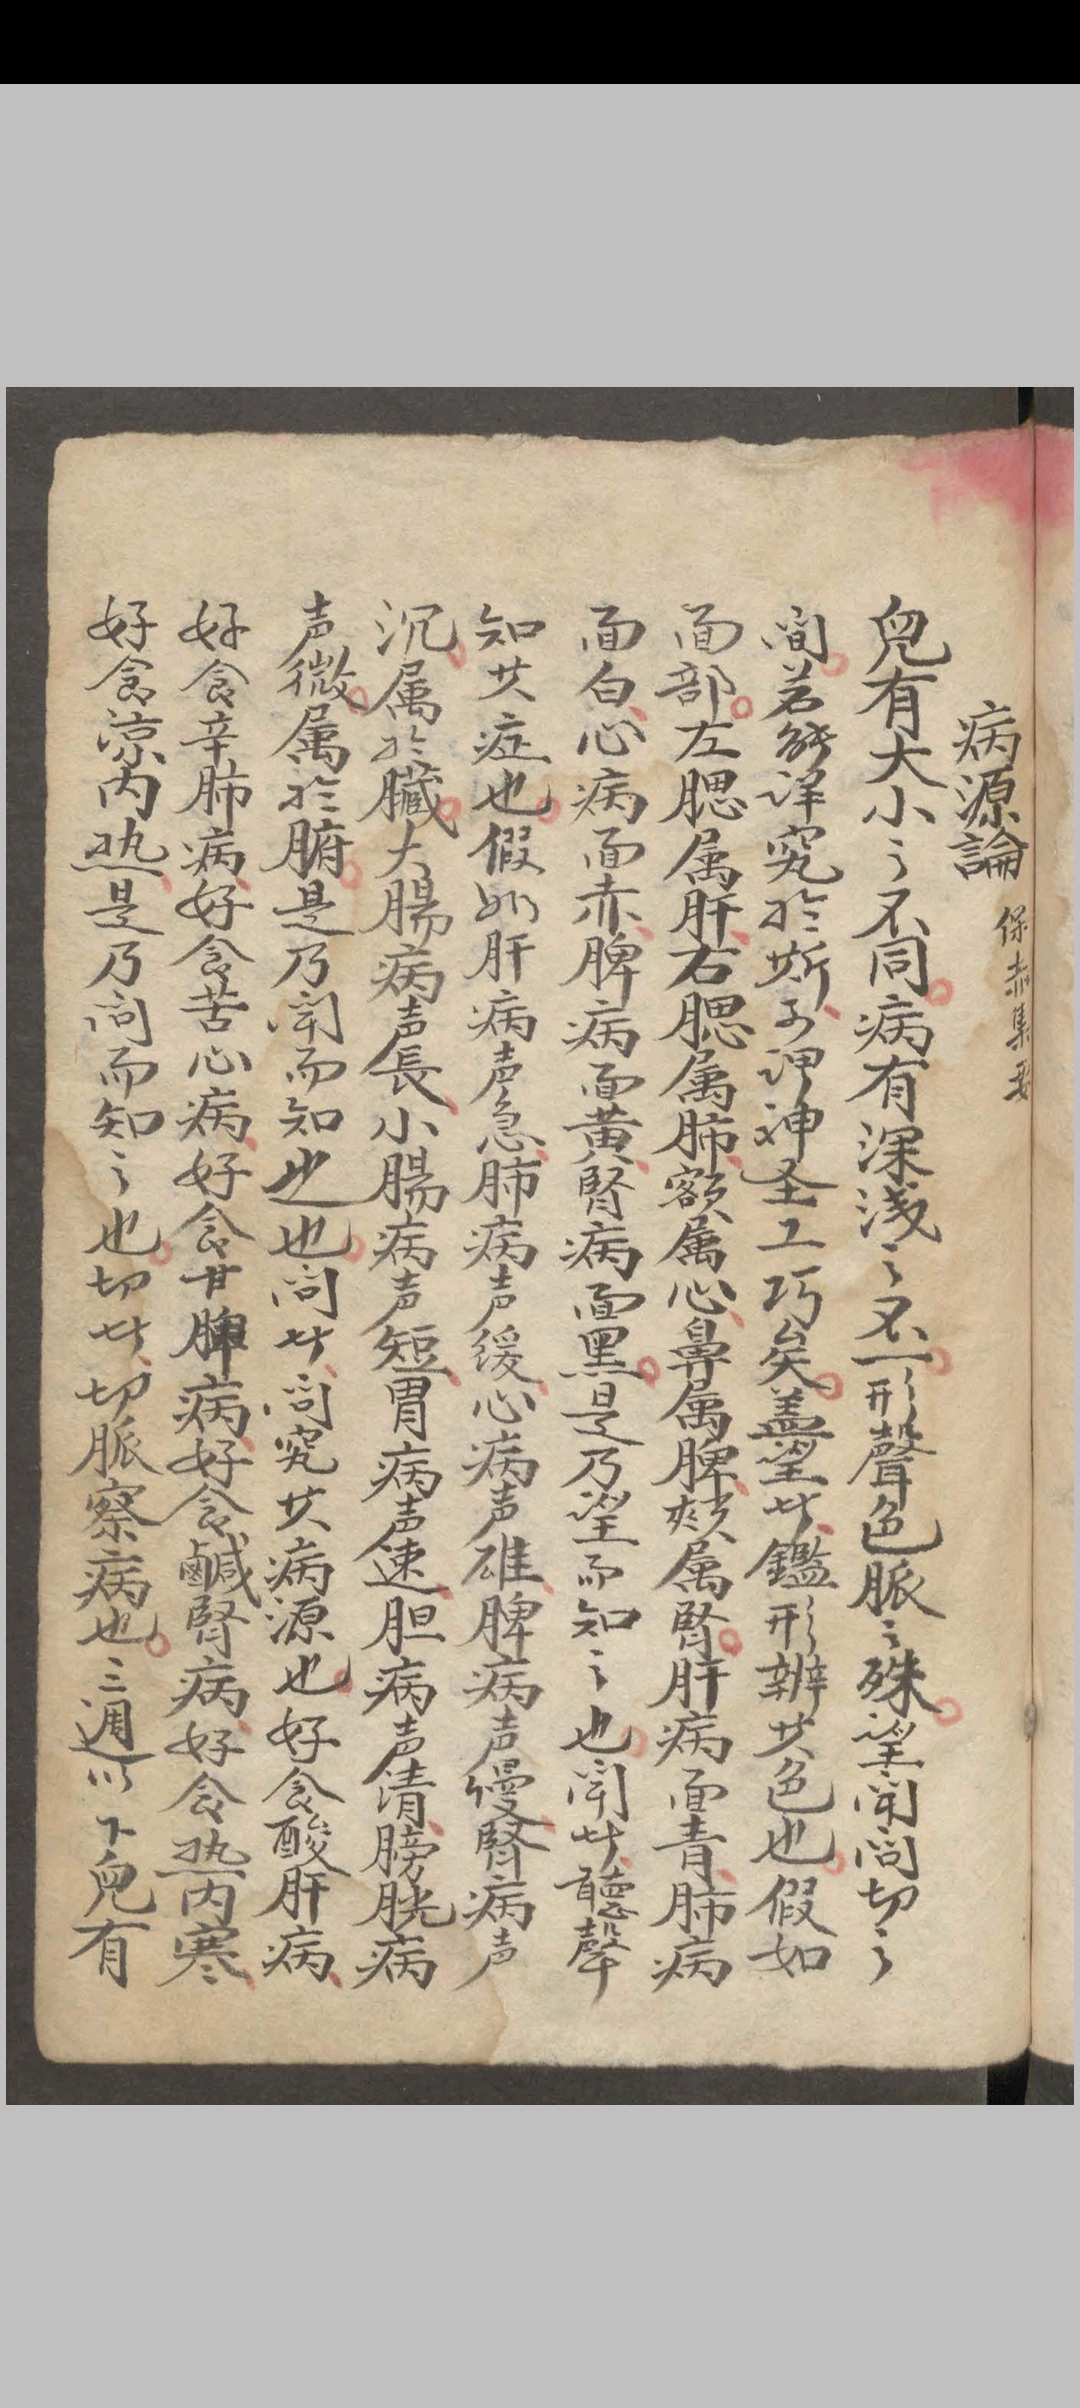 病源論 保赤集要
兒有大小之不同病有深淺之不一形聲色脈之殊望聞問切之
間若能詳究於斯可謂神圣工巧矣盖望者鑑形辨其色也假如
面部左腮属肝右腮属肺額属心鼻属脾頦属腎肝病面青肺病
面白心病面赤脾病面黄腎病面黑是乃望而知之也聞者聽聲
知其症也假如肝病声急肺病声緩心病声雄脾病声慢腎病声
沉属於臟大腸病声長小腸病声短胃病声速胆病声清膀胱病
声微属於腑是乃聞而知之也問者問究其病源也好食酸肝病
好食辛肺病好食苦心病好食甘脾病好食鹹腎病好食热内寒
好食涼内热是乃問而知之也切者切脈察病也三週以下兒有